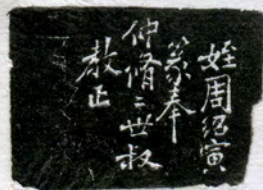 姪周紹寅
篆奉
仲脩二世叔
教正